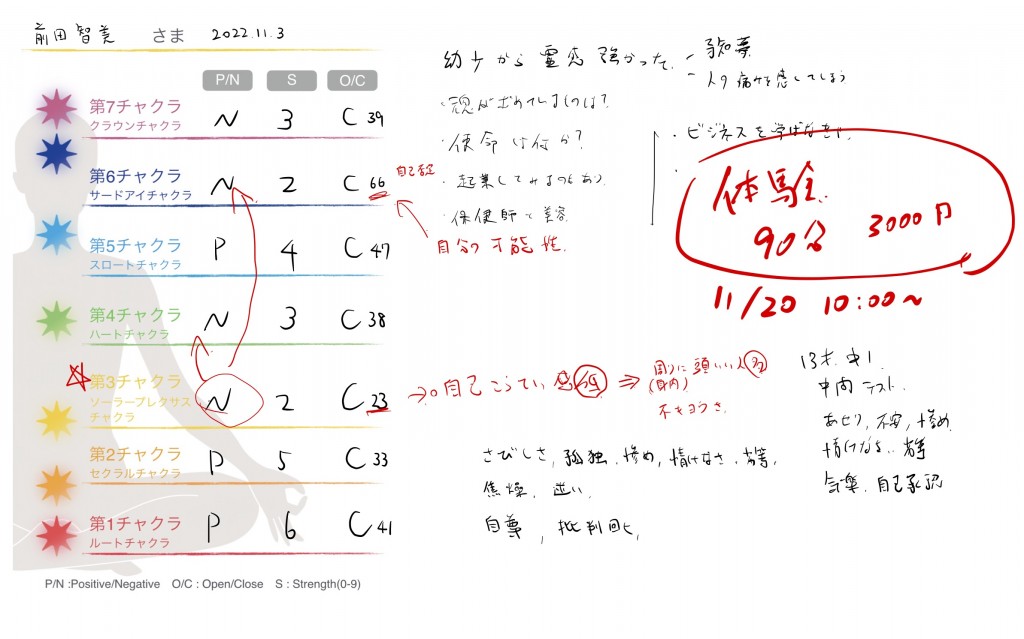 前田智美 さま 2022.11.3
P/N S O/C
第7チャクラ
クラウンチャクラ
N 3 C 39
第6チャクラ
サードアイチャクラ
N 2 C 66
第5チャクラ
スロートチャクラ
P 4 C 47
第4チャクラ
ハートチャクラ
N 3 C 38
第3チャクラ
ソーラープレクサス
チャクラ
N 2 C 23
第2チャクラ
セクラルチャクラ
P 5 C 33
第1チャクラ
ルートチャクラ
P 6 C 41
P/N :Positive/Negative O/C : Open/Close S : Strength(0-9)
幼少から霊感強かった
- 予知夢
- 人の痛みを感じてしまう
・使命は何か?
・起業してみるのもあり
・保健師 美容
自分の可能性
・ビジネスを学ばなきゃ
体験
90分 3000円
11/20 10:00~
自己こうてい感
周りに頭いい人多
(身内)
さびしさ、孤独、惨め、情けなさ、劣等、
焦燥、迷い、
自尊、批判
13才、中1
中間テスト
あせり、不安、惨め
情けなさ、劣等
自己承認